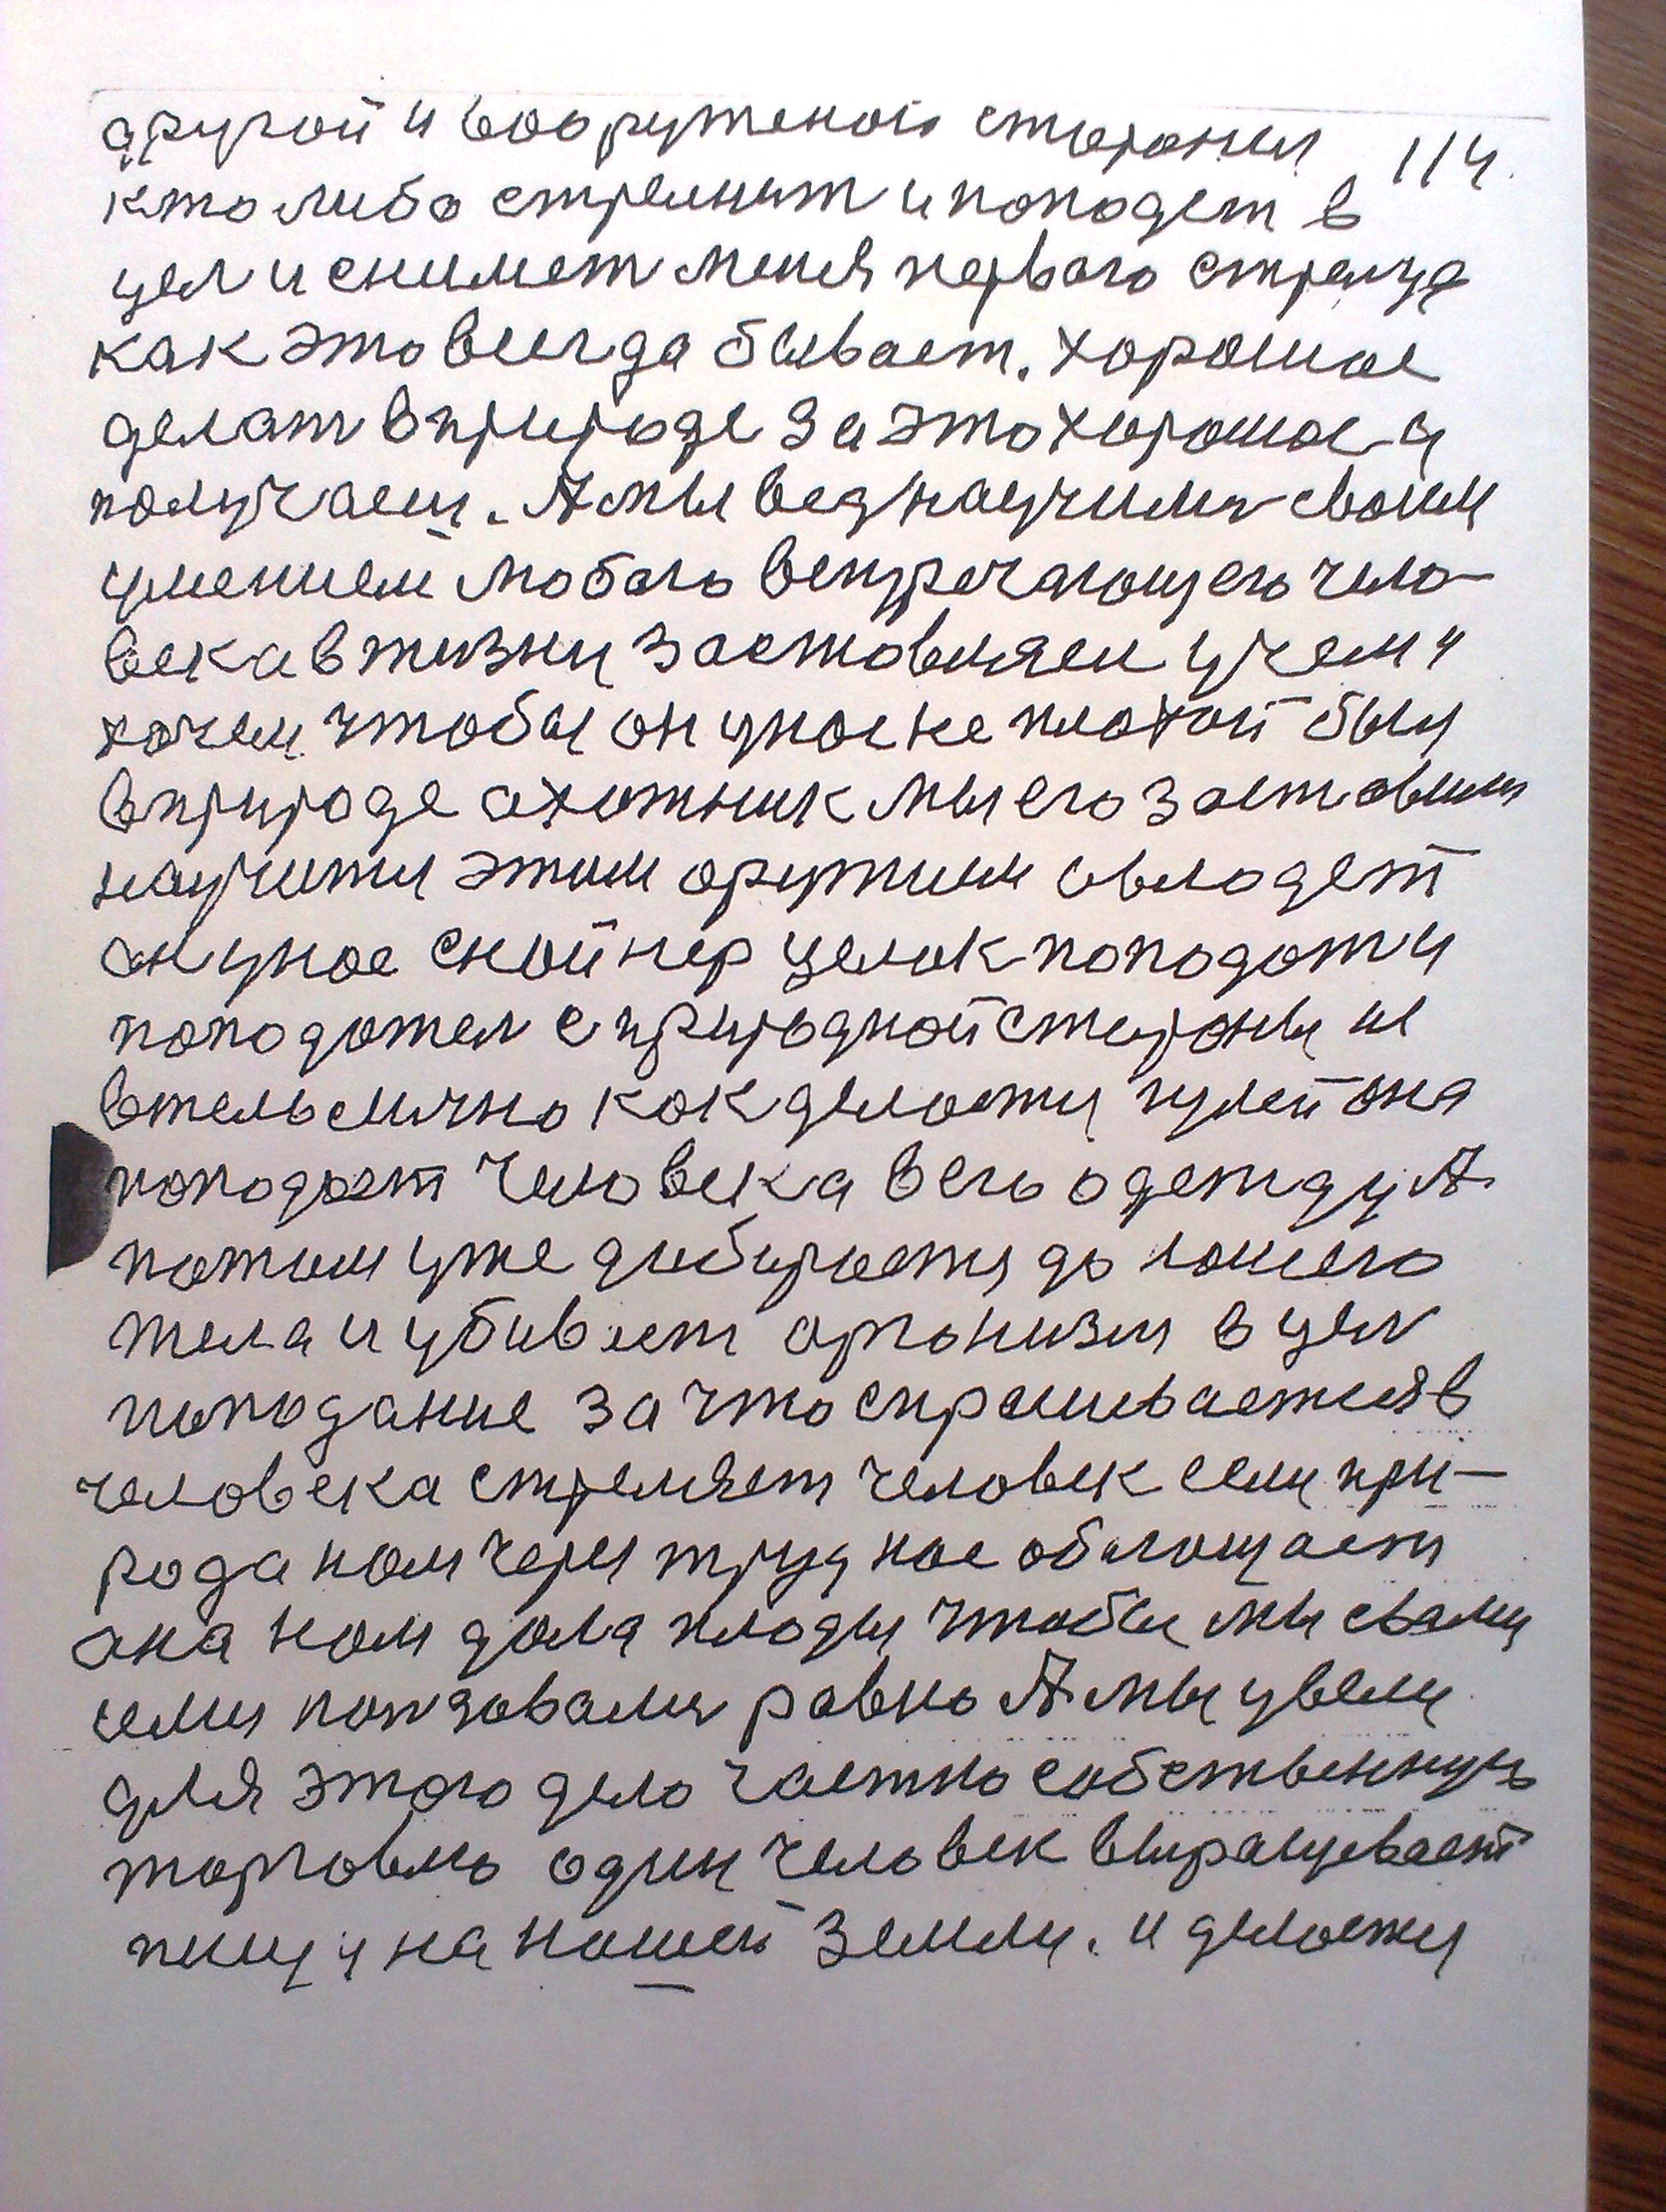 другой и вооруженой стороны 114.
кто либо стрельнит и поподет в
цел и снимет меня первого стрелца
как это всегда бывает. хорошое
делат в природе за это хорошое и
получаеш. А мы вед научилис своим
умением любого встречающего чело-
века в жизни заставляем учем и
хочем чтобы он у нас не плохой был
в природе охотник мы его заставили
научится этим оружием овладет
он у нас снайпер целок попадат и
попадател с природной стороны не
втельсично как делается пулей она
попадает человека в его одежду А
потом уже дибирается до нашего
тела и убивает организм в цел
поподание за что спрашивается в
человека стреляет человек если при-
рода нам через трудное облощает
она нам дала плоды чтобы мы свами
ими ползовалис равно А мы ввели
для этого дело частно собственную
торговлю один человек выращивает
пищу на нашей земли. и делается